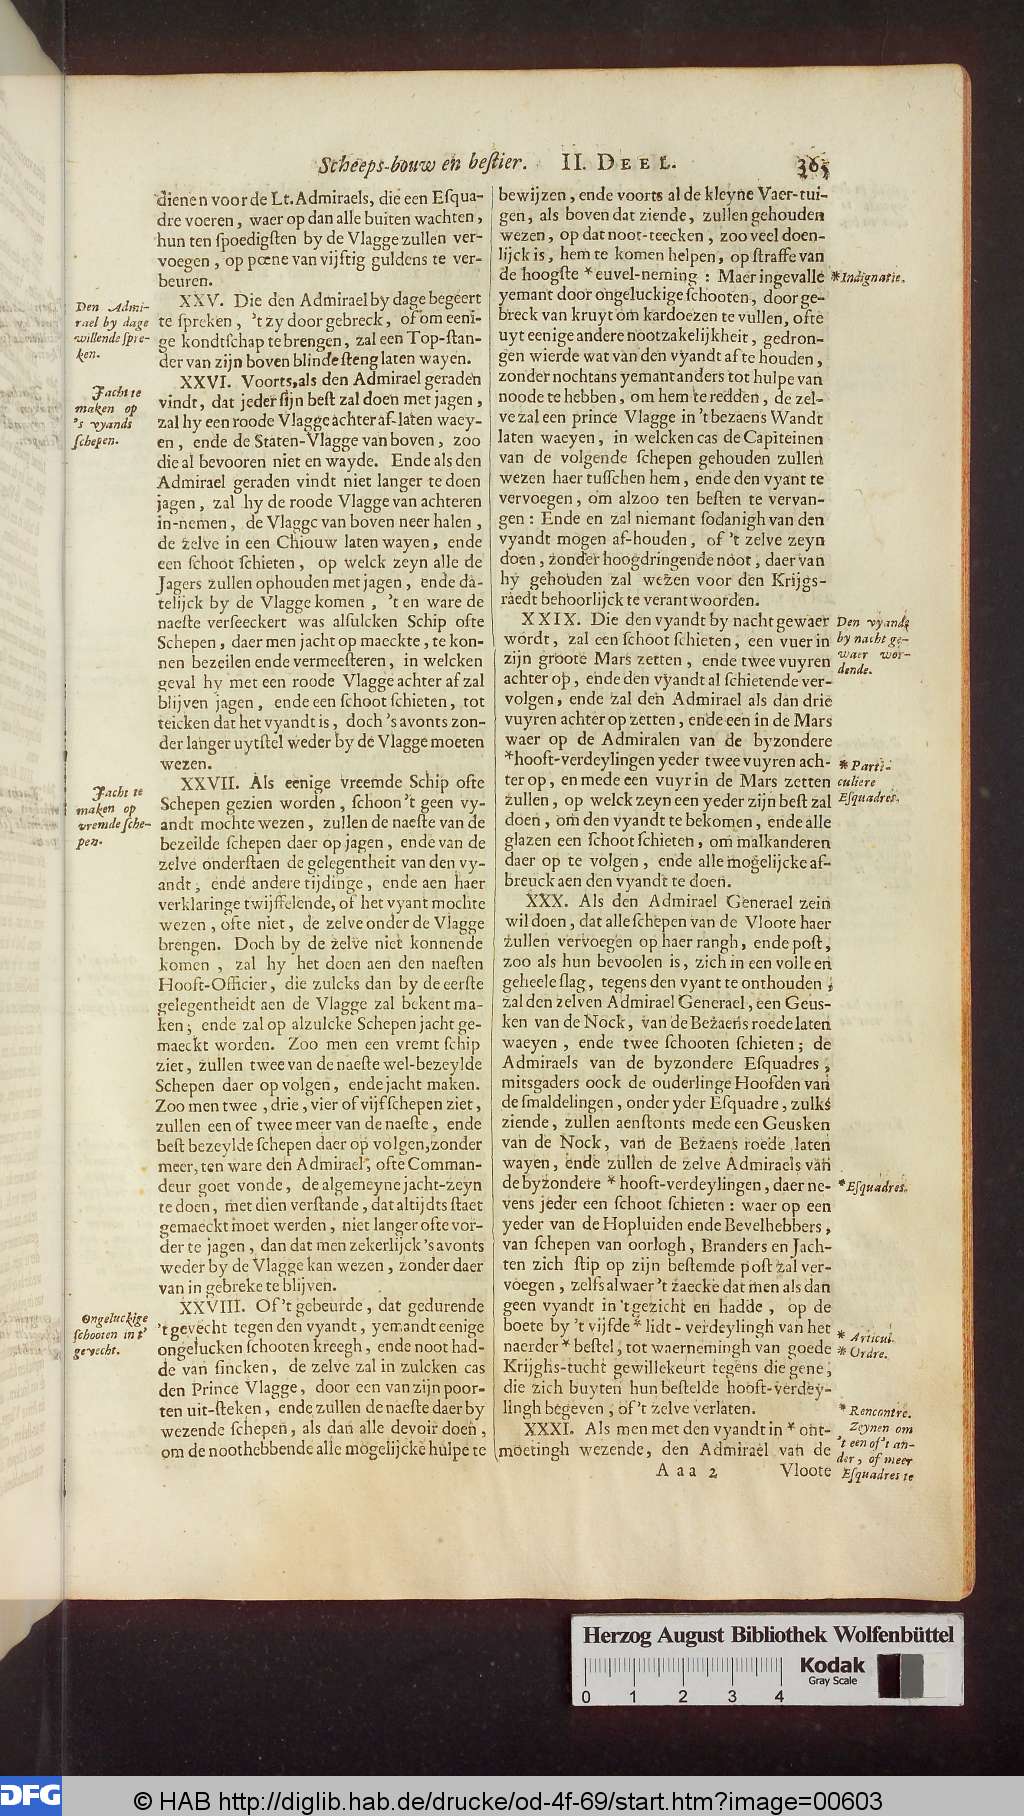 Scheeps-bouw en beſtier. II. DEEL. 365
dienen voor de Lt. Admiraels, die een Eſqua-
dre voeren, waer op dan alle buiten wachten,
hun ten ſpoedigſten by de Vlagge zullen ver-
voegen, op pœne van vijftig guldens te ver-
beuren.
Den Admi-
rael by dage
willende ſpre-
ken.
XXV. Die den Admirael by dage begeert
te ſpreken, 't zy door gebreck, of om eeni-
ge kondtſchap te brengen, zal een Top-ſtan-
der van zijn boven blinde ſteng laten wayen.
Jacht te
maken op
's vyands
ſchepen.
XXVI. Voorts, als den Admirael geraden
vindt, dat jeder ſijn beſt zal doen met jagen,
zal hy een roode Vlagge achter af-laten waey-
en, ende de Staten-Vlagge van boven, zoo
die al bevooren niet en wayde. Ende als den
Admirael geraden vindt niet langer te doen
jagen, zal hy de roode Vlagge van achteren
in-nemen, de Vlagge van boven neer halen,
de zelve in een Chiouw laten wayen, ende
een ſchoot ſchieten, op welck zeyn alle de
Jagers zullen ophouden met jagen, ende da-
telijck by de Vlagge komen, 't en ware de
naeſte verſeeckert was alſulcken Schip ofte
Schepen, daer men jacht op maeckte, te kon-
nen bezeilen ende vermeeſteren, in welcken
geval hy met een roode Vlagge achter af zal
blijven jagen, ende een ſchoot ſchieten, tot
teicken dat het vyandt is, doch 's avonts zon-
der langer uytſtel weder by de Vlagge moeten
wezen.
Jacht te
maken op
vremde ſche-
pen.
XXVII. Als eenige vreemde Schip ofte
Schepen gezien worden, ſchoon 't geen vy-
andt mochte wezen, zullen de naeſte van de
bezeilde ſchepen daer op jagen, ende van de
zelve onderſtaen de gelegentheit van den vy-
andt, ende andere tijdinge, ende aen haer
verklaringe twijffelende, of het vyant mochte
wezen, ofte niet, de zelve onder de Vlagge
brengen. Doch by de zelve niet konnende
komen, zal hy het doen aen den naeſten
Hooft-Officier, die zulcks dan by de eerſte
gelegentheidt aen de Vlagge zal bekent ma-
ken; ende zal op alzulcke Schepen jacht ge-
maeckt worden. Zoo men een vremt ſchip
ziet, zullen twee van de naeſte wel-bezeylde
Schepen daer op volgen, ende jacht maken.
Zoo men twee, drie, vier of vijf ſchepen ziet,
zullen een of twee meer van de naeſte, ende
beſt bezeylde ſchepen daer op volgen, zonder
meer, ten ware den Admirael, ofte Comman-
deur goet vonde, de algemeyne jacht-zeyn
te doen, met dien verſtande, dat altijdts ſtaet
gemaeckt moet werden, niet langer ofte vor-
der te jagen, dan dat men zekerlijck 's avonts
weder by de Vlagge kan wezen, zonder daer
van in gebreke te blijven.
Ongeluckige
ſchooten in t'
gevecht.
XXVIII. Of 't gebeurde, dat gedurende
't gevecht tegen den vyandt, yemandt eenige
ongelucken ſchooten kreegh, ende noot had-
de van ſincken, de zelve zal in zulcken cas
den Prince Vlagge, door een van zijn poor-
ten uit-ſteken, ende zullen de naeſte daer by
wezende ſchepen, als dan alle devoir doen,
om de noothebbende alle mogelijcke hulpe te
bewijzen, ende voorts al de kleyne Vaer-tui-
gen, als boven dat ziende, zullen gehouden
wezen, op dat noot-teecken, zoo veel doen-
lijck is, hem te komen helpen, op ſtraffe van
de hoogſte * euvel-neming : Maer ingevalle
* Indignatie.
yemant door ongeluckige ſchooten, door ge-
breck van kruyt om kardoezen te vullen, ofte
uyt eenige andere nootzakelijkheit, gedron-
gen wierde wat van den vyandt af te houden,
zonder nochtans yemant anders tot hulpe van
noode te hebben, om hem te redden, de zel-
ve zal een prince Vlagge in 't bezaens Wandt
laten waeyen, in welcken cas de Capiteinen
van de volgende ſchepen gehouden zullen
wezen haer tuſſchen hem, ende den vyant te
vervoegen, om alzoo ten beſten te vervan-
gen : Ende en zal niemant ſodanigh van den
vyandt mogen af-houden, of 't zelve zeyn
doen, zonder hoogdringende noot, daer van
hy gehouden zal wezen voor den Krijgs-
raedt behoorlijck te verantwoorden.
Den vyandt
by nacht ge-
waer wor-
dende.
XXIX. Die den vyandt by nacht gewaer
wordt, zal een ſchoot ſchieten, een vuer in
zijn groote Mars zetten, ende twee vuyren
achter op, ende den vyandt al ſchietende ver-
volgen, ende zal den Admirael als dan drie
vuyren achter op zetten, ende een in de Mars
waer op de Admiralen van de byzondere
* hooft-verdeylingen yeder twee vuyren ach-
* Parti-
culiere
Eſquadres.
ter op, en mede een vuyr in de Mars zetten
zullen, op welck zeyn een yeder zijn beſt zal
doen, om den vyandt te bekomen, ende alle
glazen een ſchoot ſchieten, om malkanderen
daer op te volgen, ende alle mogelijcke af-
breuck aen den vyandt te doen.
XXX. Als den Admirael Generael zein
wil doen, dat alle ſchepen van de Vloote haer
zullen vervoegen op haer rangh, ende poſt,
zoo als hun bevoolen is, zich in een volle en
geheele ſlag, tegens den vyant te onthouden,
zal den zelven Admirael Generael, een Geus-
ken van de Nock, van de Bezaens roede laten
waeyen, ende twee ſchooten ſchieten; de
Admiraels van de byzondere Eſquadres,
mitsgaders oock de ouderlinge Hoofden van
de ſmaldelingen, onder yder Eſquadre, zulks
ziende, zullen aenſtonts mede een Geusken
van de Nock, van de Bezaens roede laten
wayen, ende zullen de zelve Admiraels van
de byzondere * hooft-verdeylingen, daer ne-
* Eſquadres.
vens jeder een ſchoot ſchieten : waer op een
yeder van de Hopluiden ende Bevelhebbers,
van ſchepen van oorlogh, Branders en Jach-
ten zich ſtip op zijn beſtemde poſt zal ver-
voegen, zelfs al waer 't zaecke dat men als dan
geen vyandt in 't gezicht en hadde, op de
boete by 't vijfde * lidt-verdeylingh van het
* Articul.
naerder * beſtel, tot waernemingh van goede
* Ordre.
Krijghs-tucht gewillekeurt tegens die gene,
die zich buyten hun beſtelde hooft-verdey-
lingh begeven, of 't zelve verlaten.
XXXI. Als men met den vyandt in * ont-
* Rencontre.
Zeynen om
't een of 't an-
der, of meer
Eſquadres te
moetingh wezende, den Admirael van de
Aaa 2 Vloote
Herzog August Bibliothek Wolfenbüttel
0 1 2 3 4
Kodak
Gray Scale
DFG
© HAB http://diglib.hab.de/drucke/od-4f-69/start.htm?image=00603